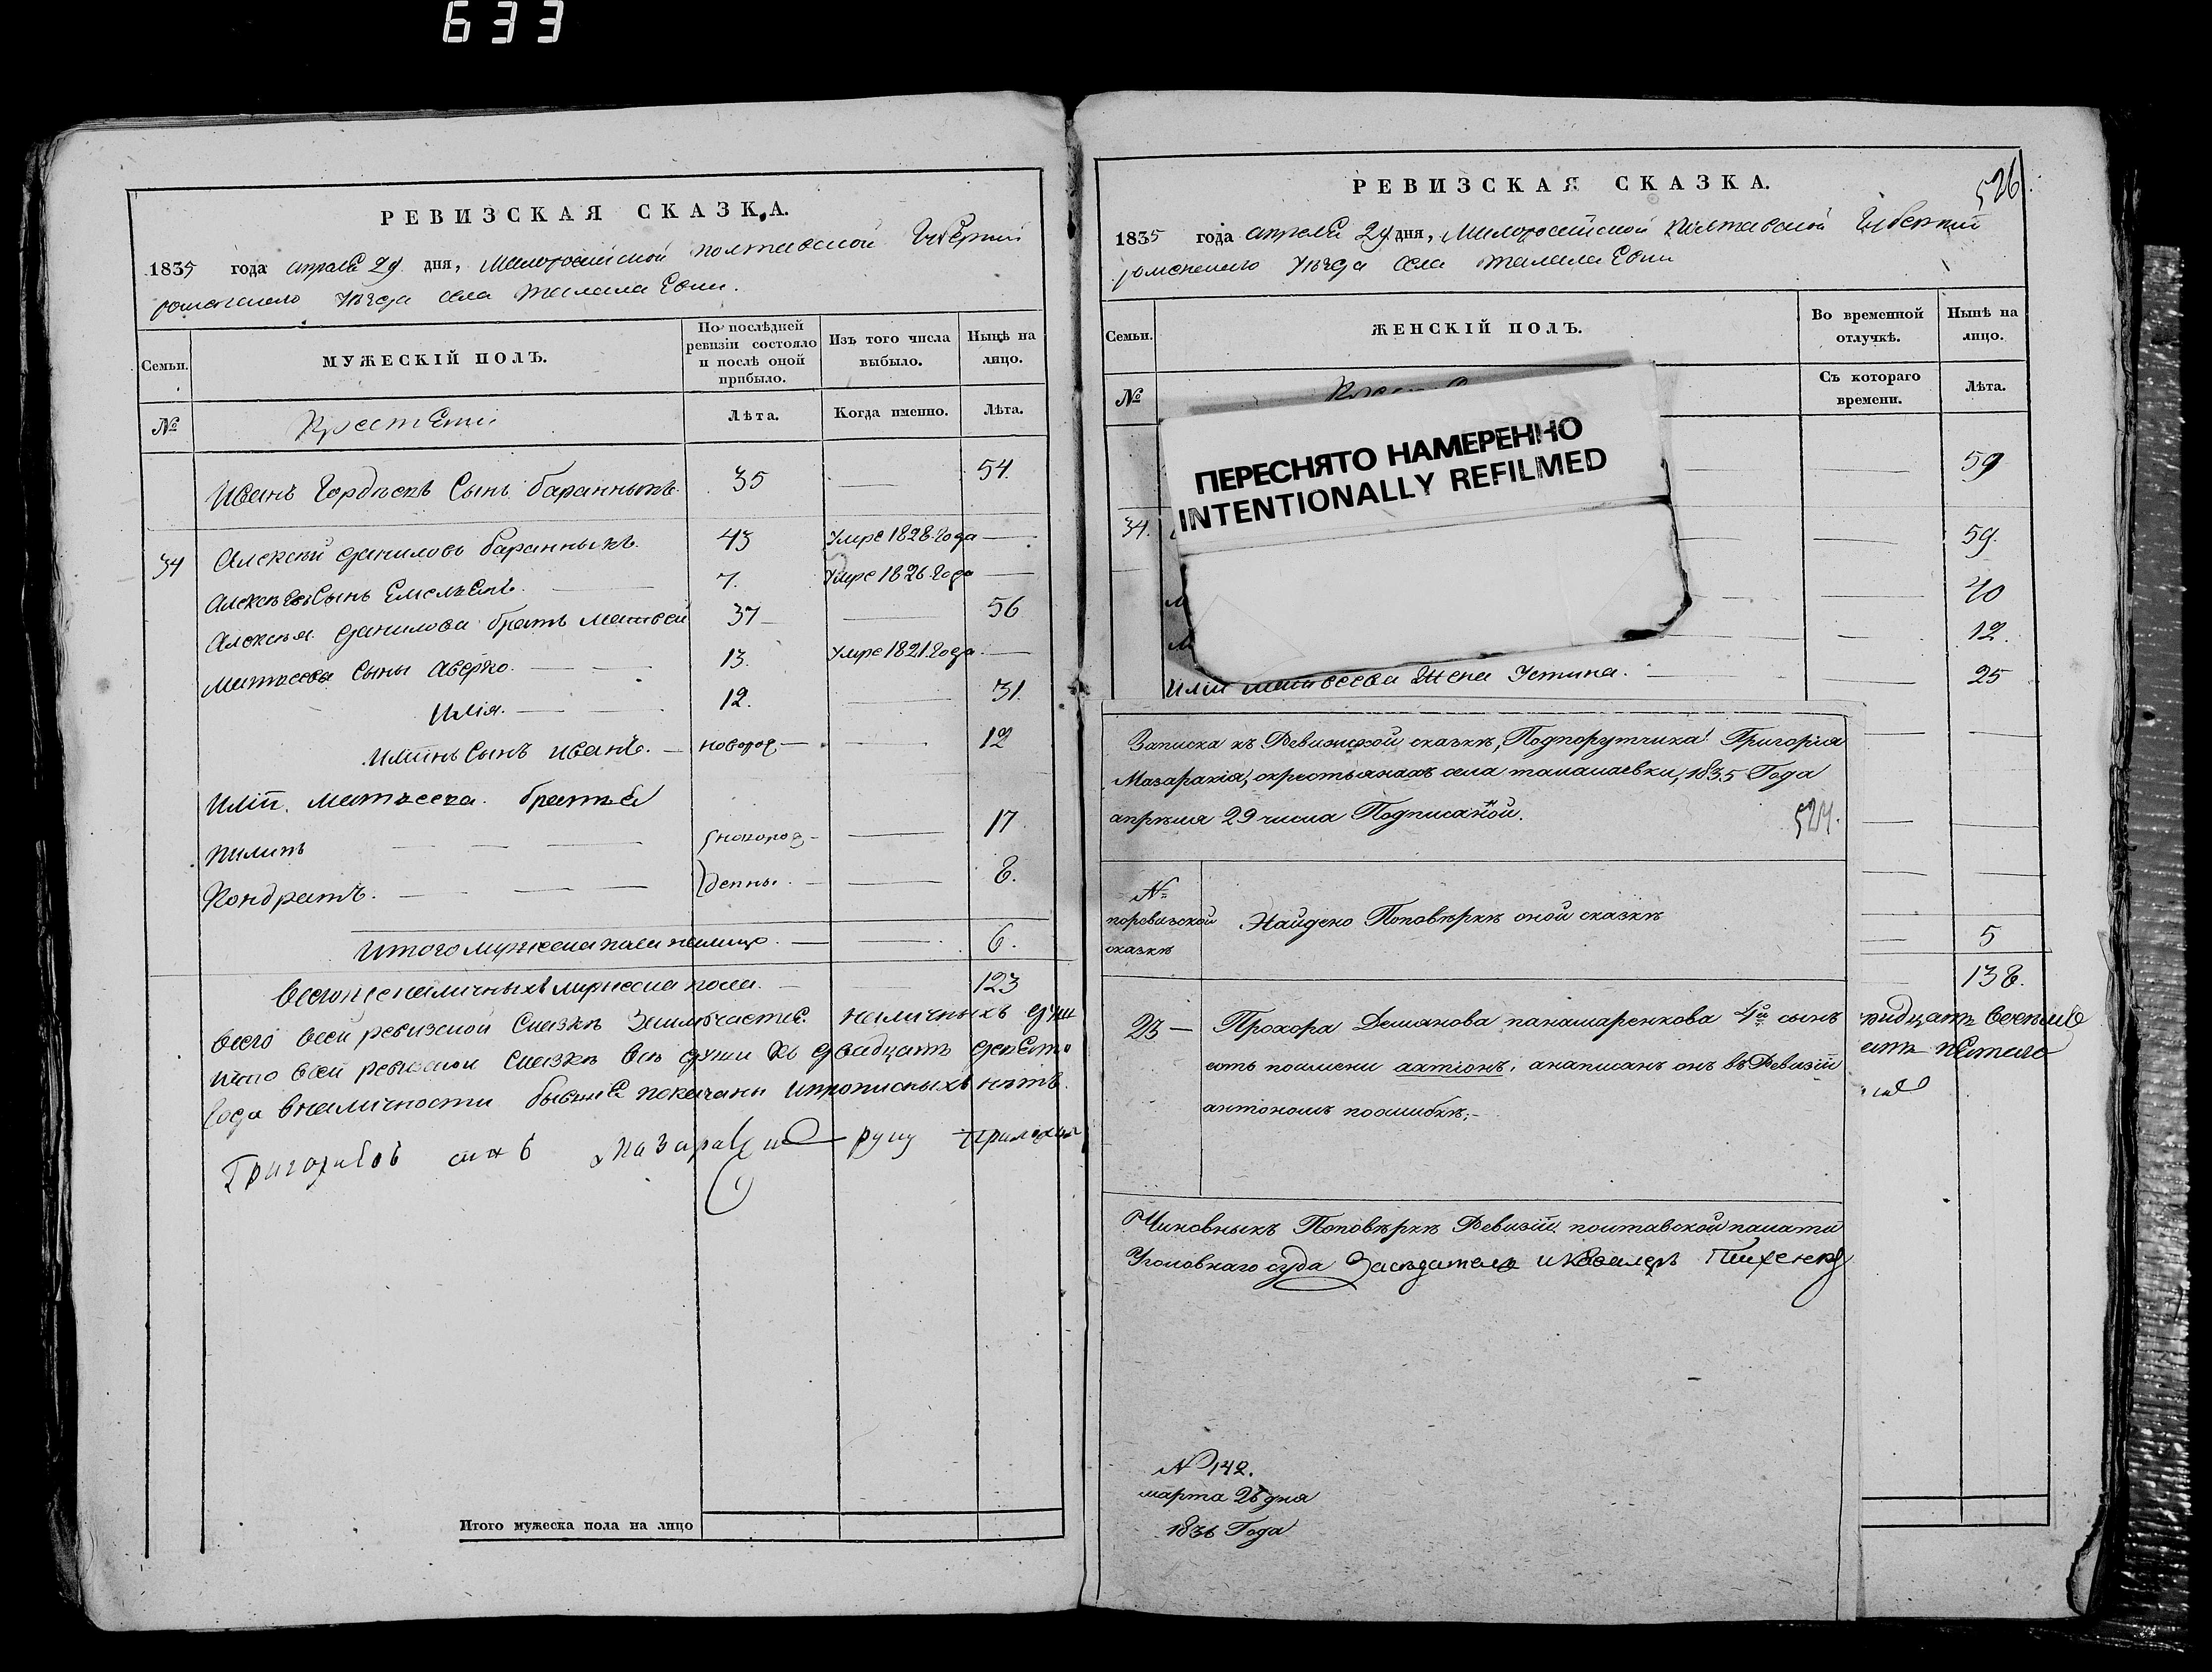 633
РЕВИЗСКАЯ СКАЗКА.
1835 года апреля 29 дня, Малоросийской полтавской Губернии
роменского уезда села талалаевки.
Семьи.
МУЖЕСКІЙ ПОЛЪ.
По послѣдней ревизіи состояло и послѣ оной прибыло.
Изъ того числа выбыло.
Нынѣ на лицо.
№
Крестяни
Лѣта.
Когда именно.
Лѣта.
Иванъ Гордѣевъ Сынъ баранныкъ. 35 — 54.
34 Алексѣй даниловъ баранныкъ. 43 Умре 1828. года —
Алексѣевъ Сынъ Емелъянъ. 7. Умре 1826. года —
Алексѣя данилова братъ матвей 37 — 56
матвеева Сыны аверко. 13. Умре 1821. года —
Илія. 12. — 31.
Илїинъ Сынъ иванъ. — новорож — 12
Иліи матвеева братья
пилипъ новорож — 17
Кондратъ. денны. — 8.
Итого мужеска пола налицо. — 6.
Всего наличныхъ мужеска пола. — 123
всего всей ревизской Сказкѣ наличныхъ душ
что всей ревизской Сказкѣ всѣ души къ двадцать девято
года вналичности бывшие показаны ипрописныхъ нѣтъ.
руку приложил
Итого мужеска пола на лицо
РЕВИЗСКАЯ СКАЗКА.
526
1835 года апреля 29 дня, Малоросийской Полтавской Губернии
роменского Уезда Села талалаевки
Семьи.
ЖЕНСКІЙ ПОЛЪ.
Во временной отлучкѣ.
Нынѣ на лицо.
№
Съ котораго времени.
Лѣта.
ПЕРЕСНЯТО НАМЕРЕННО
INTENTIONALLY REFILMED
59
34. 59.
40
12.
Иліи матвеева Жена Устина. 25
Записка къ Ревизской сказкѣ, Подпорутчика Григорія
Мазаракія, окрестьянахъ села талалаевки, 1835 Года
апрѣля 29 числа Подписанной.
524.
№
поревизской
сказкѣ
Найдено Поповѣркѣ оной сказкѣ
23 — Прохора Демянова панамаренкова 4й сынъ
есть поимени антіонъ, анаписанъ онъ въ Ревизіи
антономъ поошибкѣ;-
5
138.
Чиновныкъ Поповѣркѣ Ревизіи полтавской палаты
Уголовнаго суда Заседатель икавалеръ
№ 142.
марта 26 дня
1836 Года